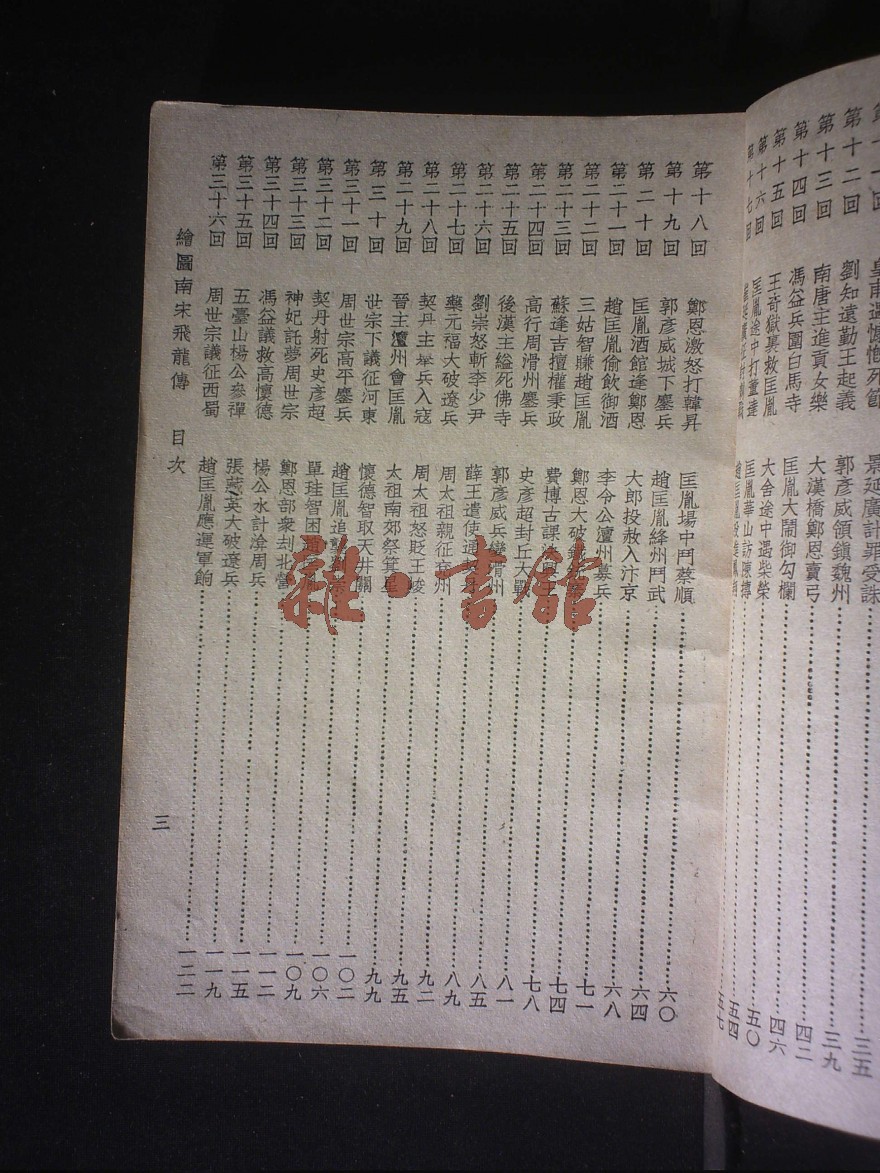 皇甫遇憤慨死節 景延廣計罪受誅 三五
第十二回 劉知遠勤王起義 郭彥威領鎮魏州 三九
第十三回 南唐主進貢女樂 大漢橋鄭恩賣弓 四二
第十四回 馮益兵圍白馬寺 匡胤大鬧御勾欄 四六
第十五回 王奇獄裏救匡胤 大舍途中遇柴榮 五〇
第十六回 匡胤途中打董達 匡胤華山訪陳摶 五四
第十七回 五七
第十八回 鄭恩激怒打韓昇 匡胤場中鬥蔡順 六〇
第十九回 郭彥威城下鏖兵 趙匡胤絳州鬥武 六四
第二十回 匡胤酒館逢鄭恩 大郎投赦入汴京 六八
第二十一回 趙匡胤偷飲御酒 李令公澶州募兵 七一
第二十二回 三姑智賺趙匡胤 鄭恩大破 七四
第二十三回 蘇逢吉擅權秉政 費博古課 七八
第二十四回 高行周滑州鏖兵 史彥超封丘大戰 八一
第二十五回 後漢主縊死佛寺 郭彥威兵變滑州 八五
第二十六回 劉崇怒斬李少尹 薛王遣使通 八九
第二十七回 藥元福大破遼兵 周太祖親征兗州 九二
第二十八回 契丹主舉兵入寇 周太祖怒貶王峻 九五
第二十九回 晉主澶州會匡胤 太祖南郊祭箕星 九九
第三十回 世宗下議征河東 懷德智取天井關 一〇二
第三十一回 周世宗高平鏖兵 趙匡胤追擊劉崇 一〇六
第三十二回 契丹射死史彥超 單珪智困 一〇九
第三十三回 神妃託夢周世宗 鄭恩部衆刦北營 一一二
第三十四回 馮益議救高懷德 楊公水計渰周兵 一一五
第三十五回 五臺山楊公參禪 張藏英大破遼兵 一一九
第三十六回 周世宗議征西蜀 趙匡胤應運軍餉 一二二
繪圖南宋飛龍傳 目次 三
雜·書館